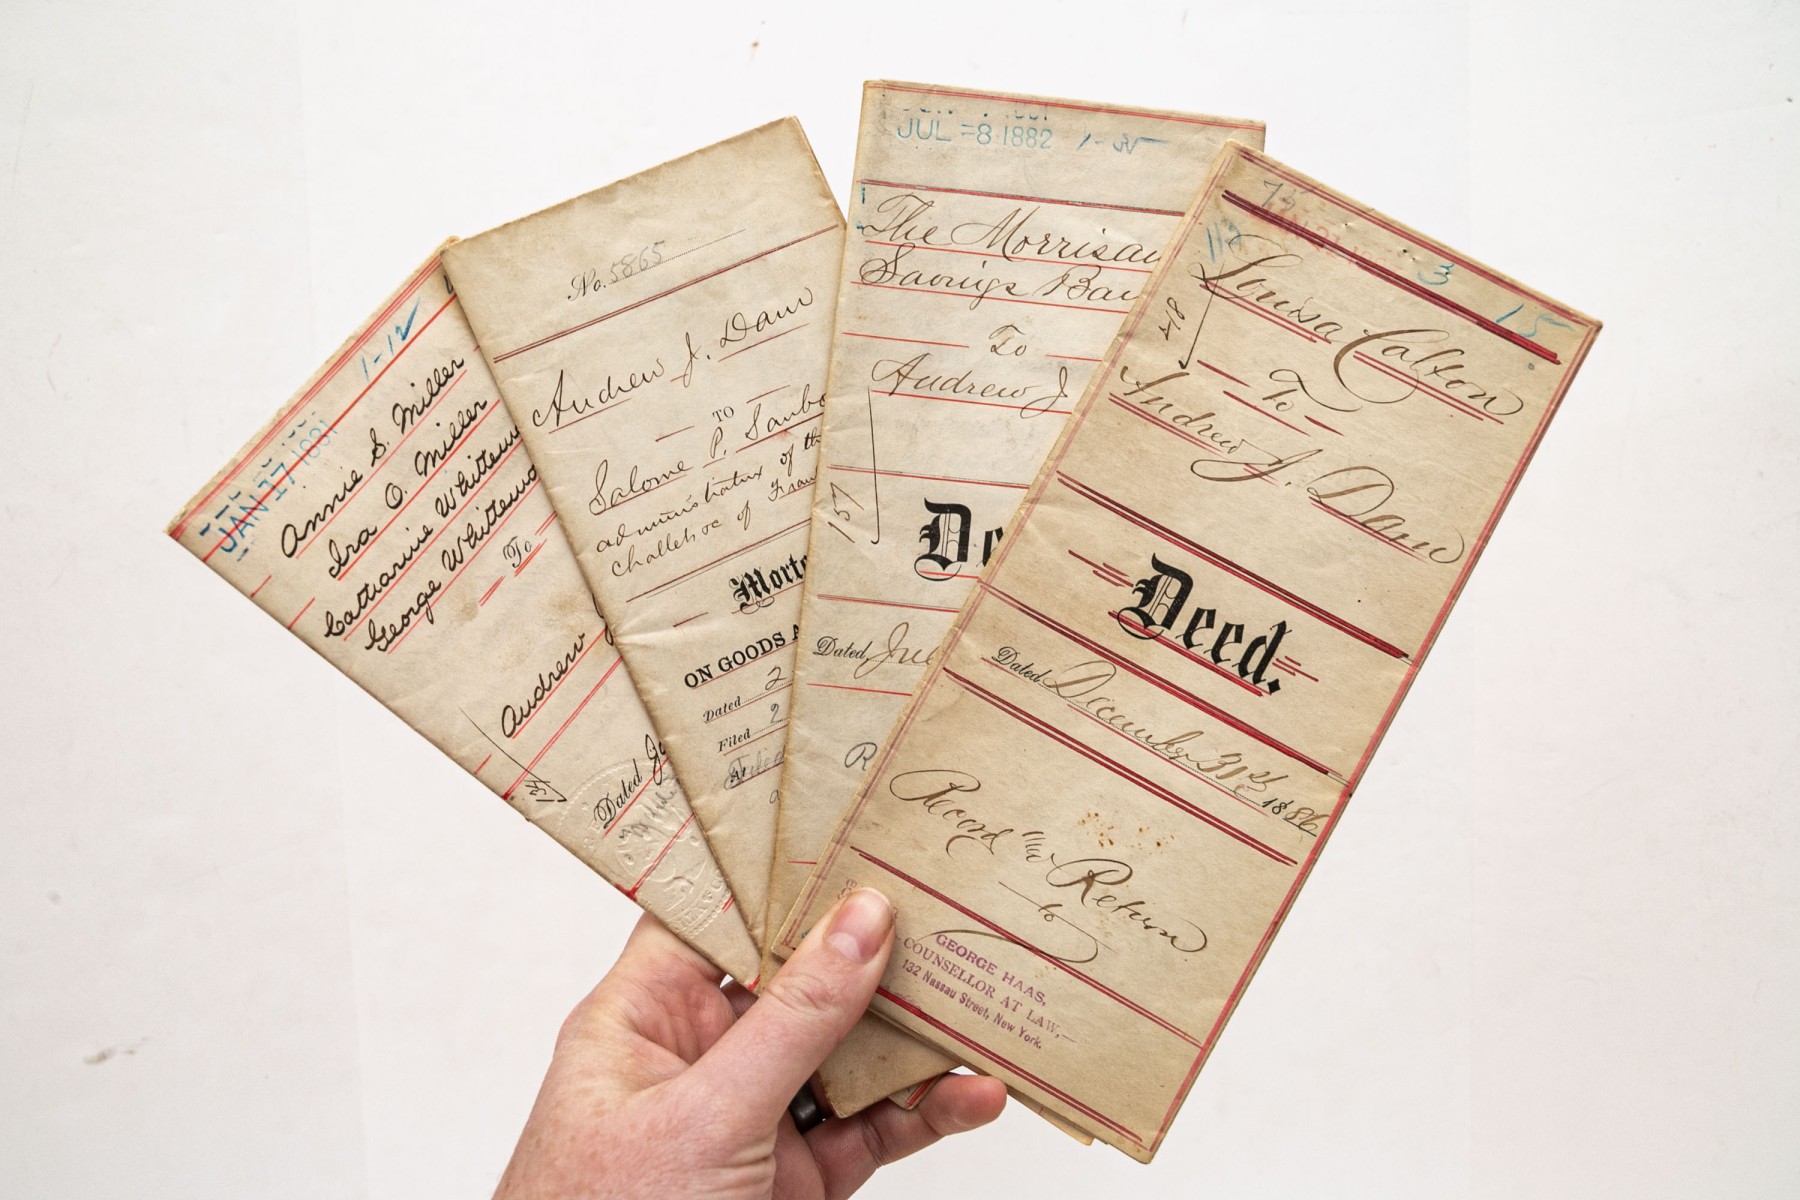 1-12
JAN 17 1881
Annie S. Miller
Ira O. Miller
Cattuarine Whittem
George Whittemo
To
Andrew
Dated
No. 5865
Andrew J. Dam
TO
Salome P. Sanbo
administratrix of the
of Fran
Mort
ON GOODS A
Dated 2
Filed 2
JUL -8 1882
The Morrisan
Savings Ban
To
Andrew J
157
De
Dated, Ju
R
75
3 15
218
Louisa Calton
To
Andrew J. Dam
Deed.
Dated December 31st 1886
Record and Return
to
GEORGE HAAS,
COUNSELLOR AT LAW,
132 Nassau Street, New York.